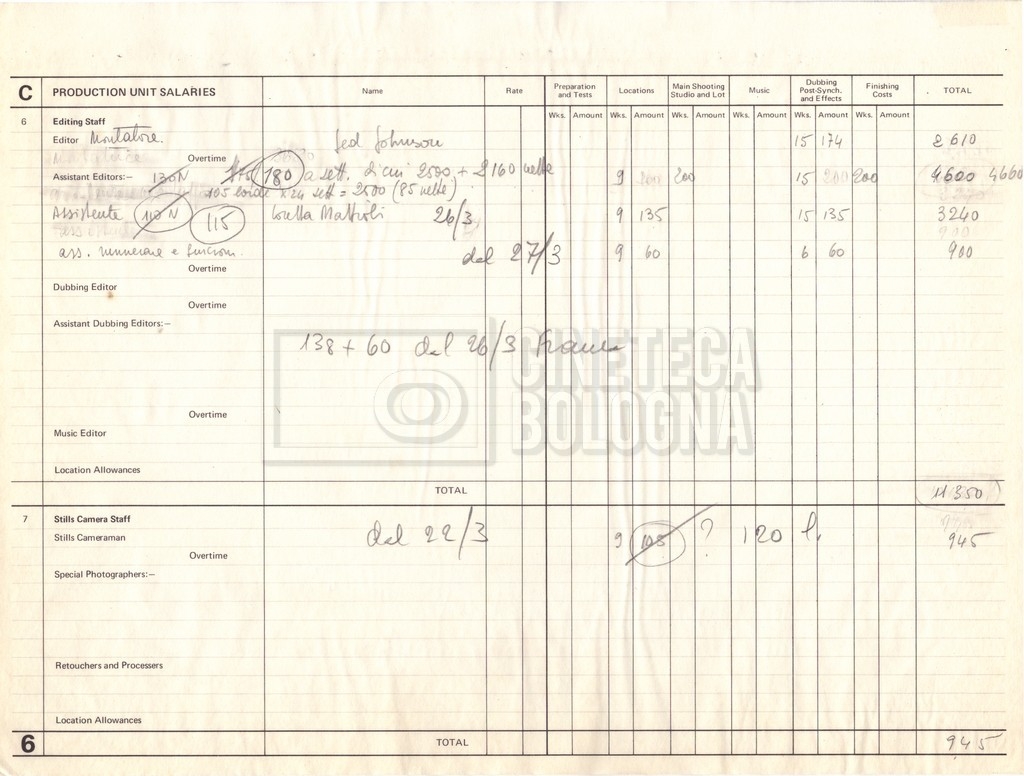 C PRODUCTION UNIT SALARIES Name Rate Preparation and Tests Locations Main Shooting Studio and Lot Music Dubbing Post-Synch. and Effects Finishing Costs TOTAL
Wks. Amount Wks. Amount Wks. Amount Wks. Amount Wks. Amount Wks. Amount
6 Editing Staff
Editor Montatore. Jed Johnson 15 174 2610
Overtime
Assistant Editors:— 130N 180 a sett. di cui 2500 + 2160 nette 9 200 200 15 200 200 4600 4660
105 x 24 sett = 2500 (85 nette)
Assistente 110 N 115 Loretta Mattioli 26/3 9 135 15 135 3240
ass. numerare e dal 27/3 9 60 6 60 900
Overtime
Dubbing Editor
Overtime
Assistant Dubbing Editors:—
138 + 60 dal 26/3
CINETECA
BOLOGNA
Overtime
Music Editor
Location Allowances
TOTAL 11350
7 Stills Camera Staff
Stills Cameraman dal 22/3 9 105 ? 120 l. 945
Overtime
Special Photographers:—
Retouchers and Processers
Location Allowances
6 TOTAL 945